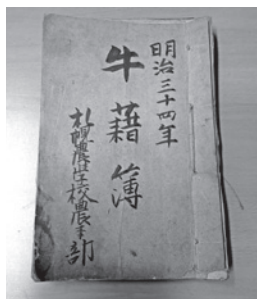 明治三十四年
牛籍簿
札幌農學校農学部